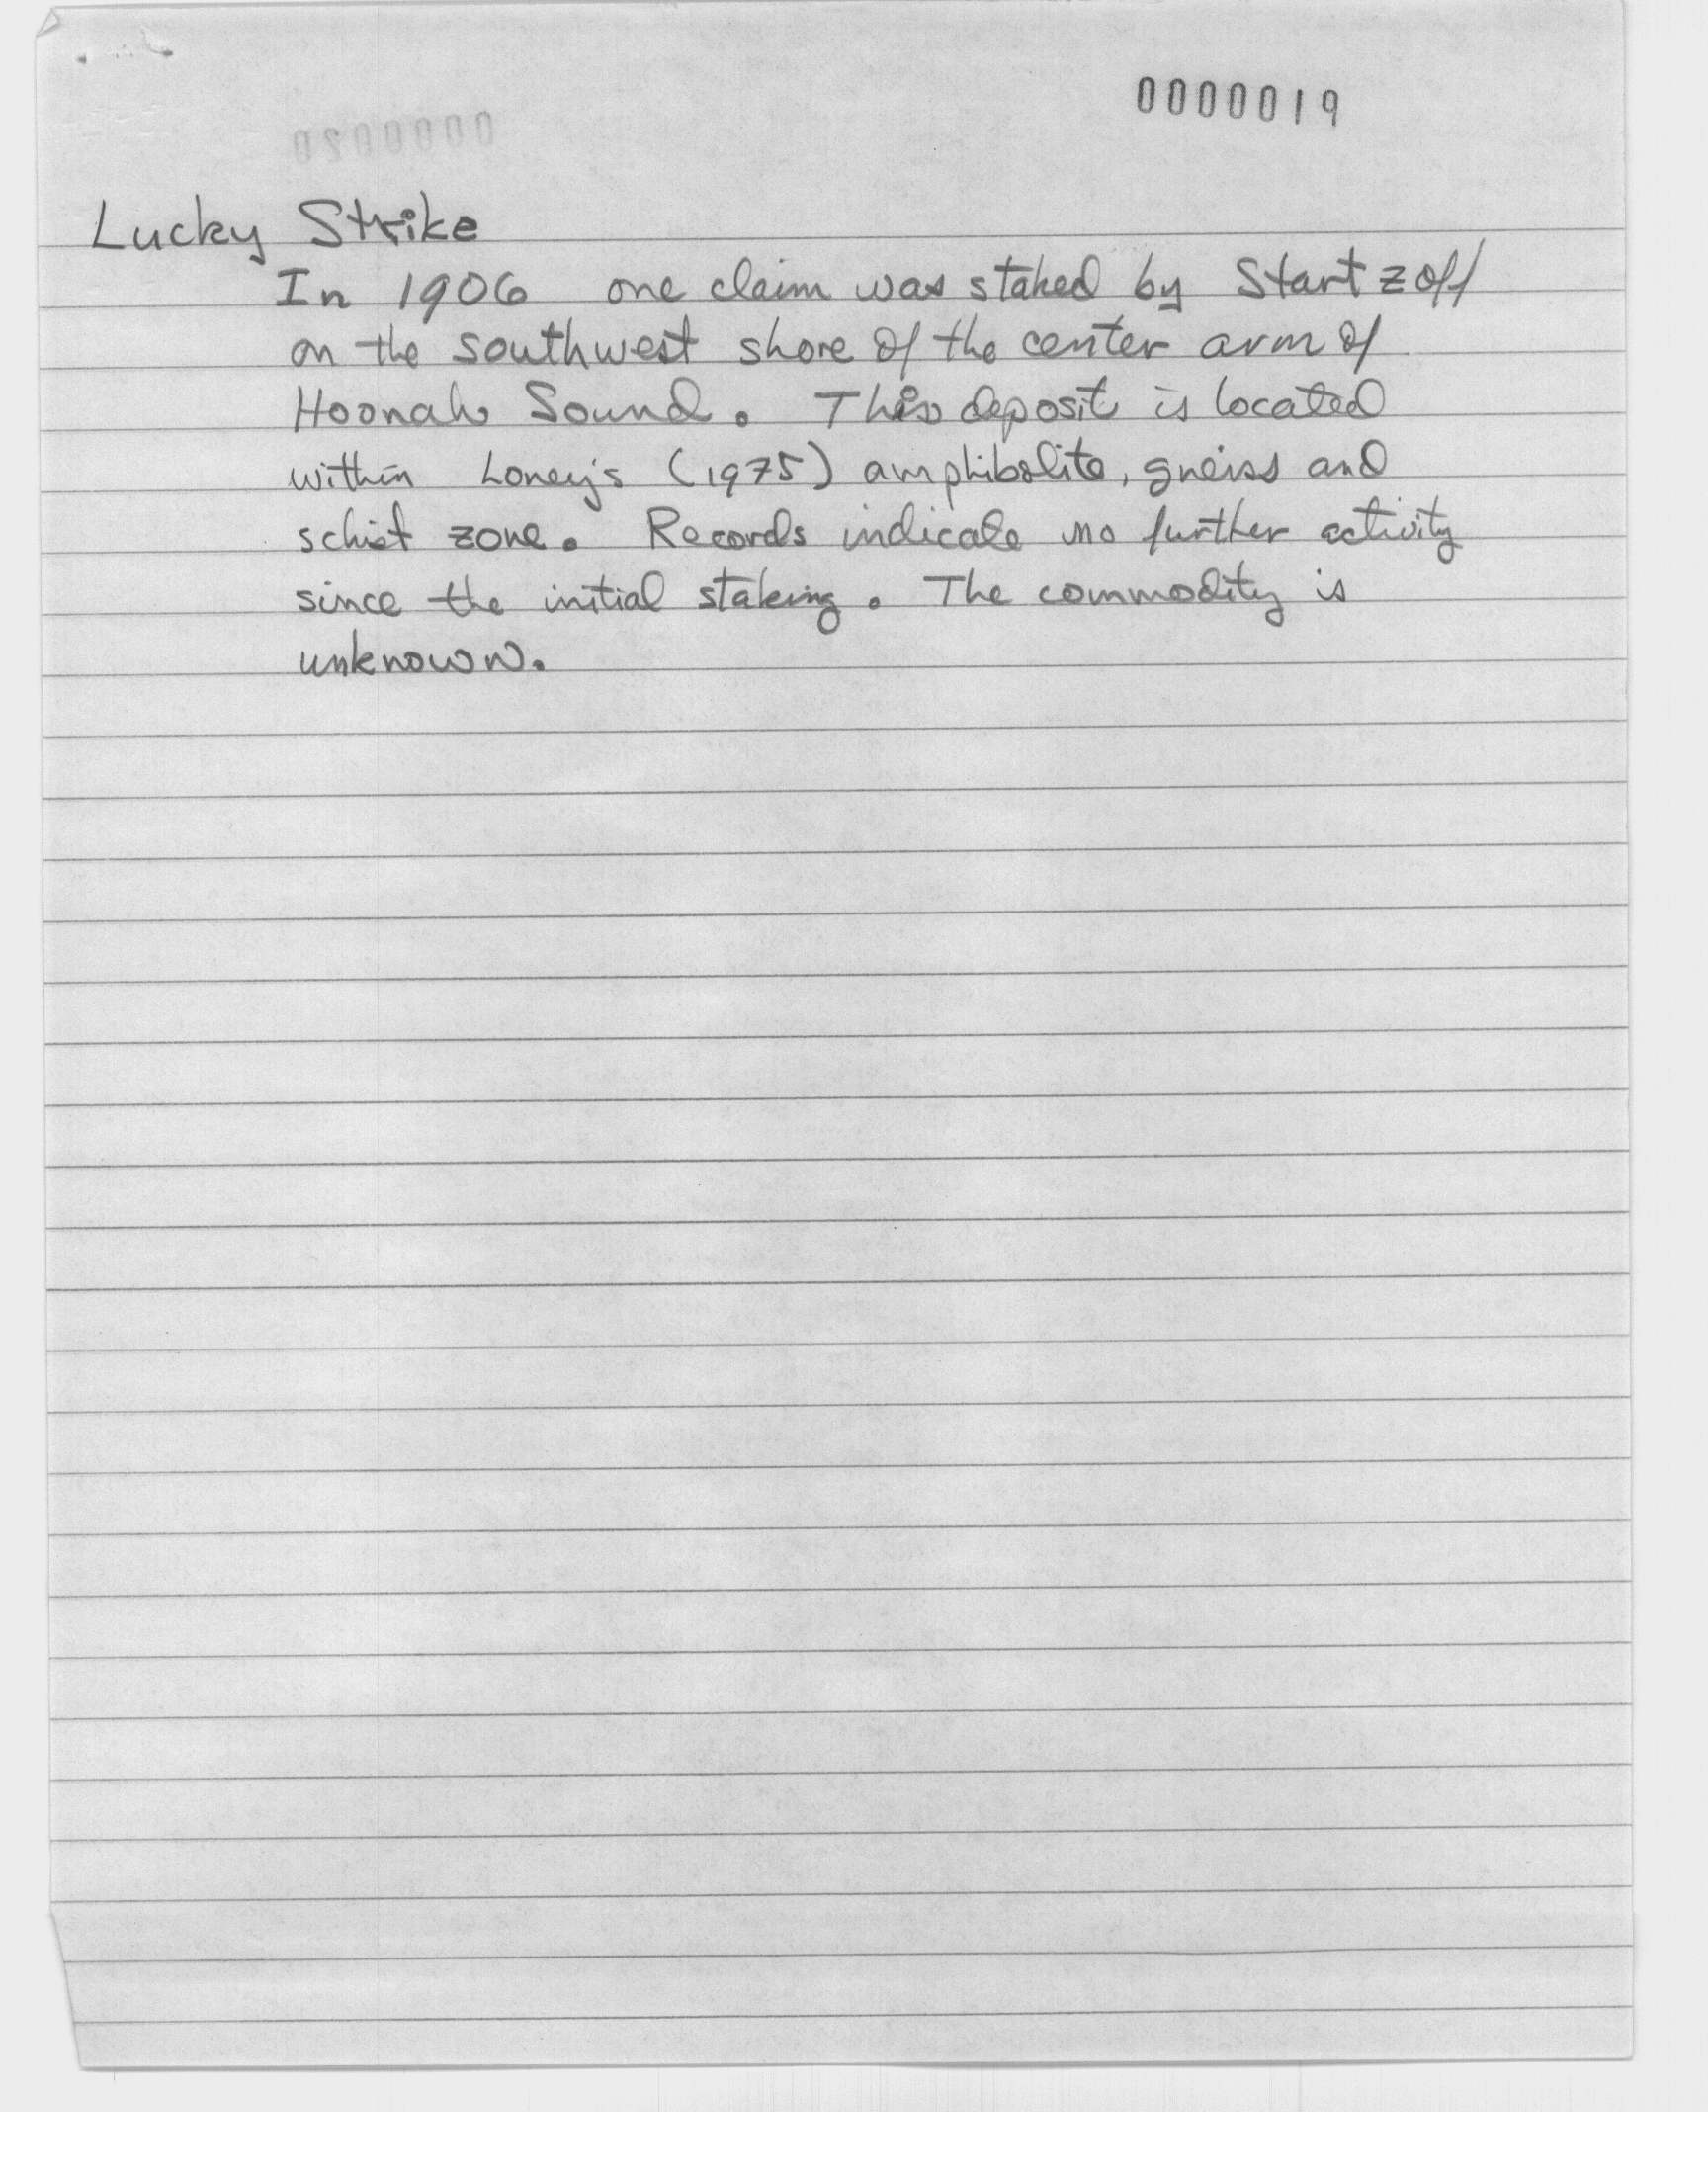 0000019
0000020
Lucky Strike
In 1906 one claim was staked by Startzoff
on the southwest shore of the center arm of
Hoonah Sound. This deposit is located
within Loney's (1975) amphibolite, gneiss and
schist zone. Records indicate no further activity
since the initial staking. The commodity is
unknown.